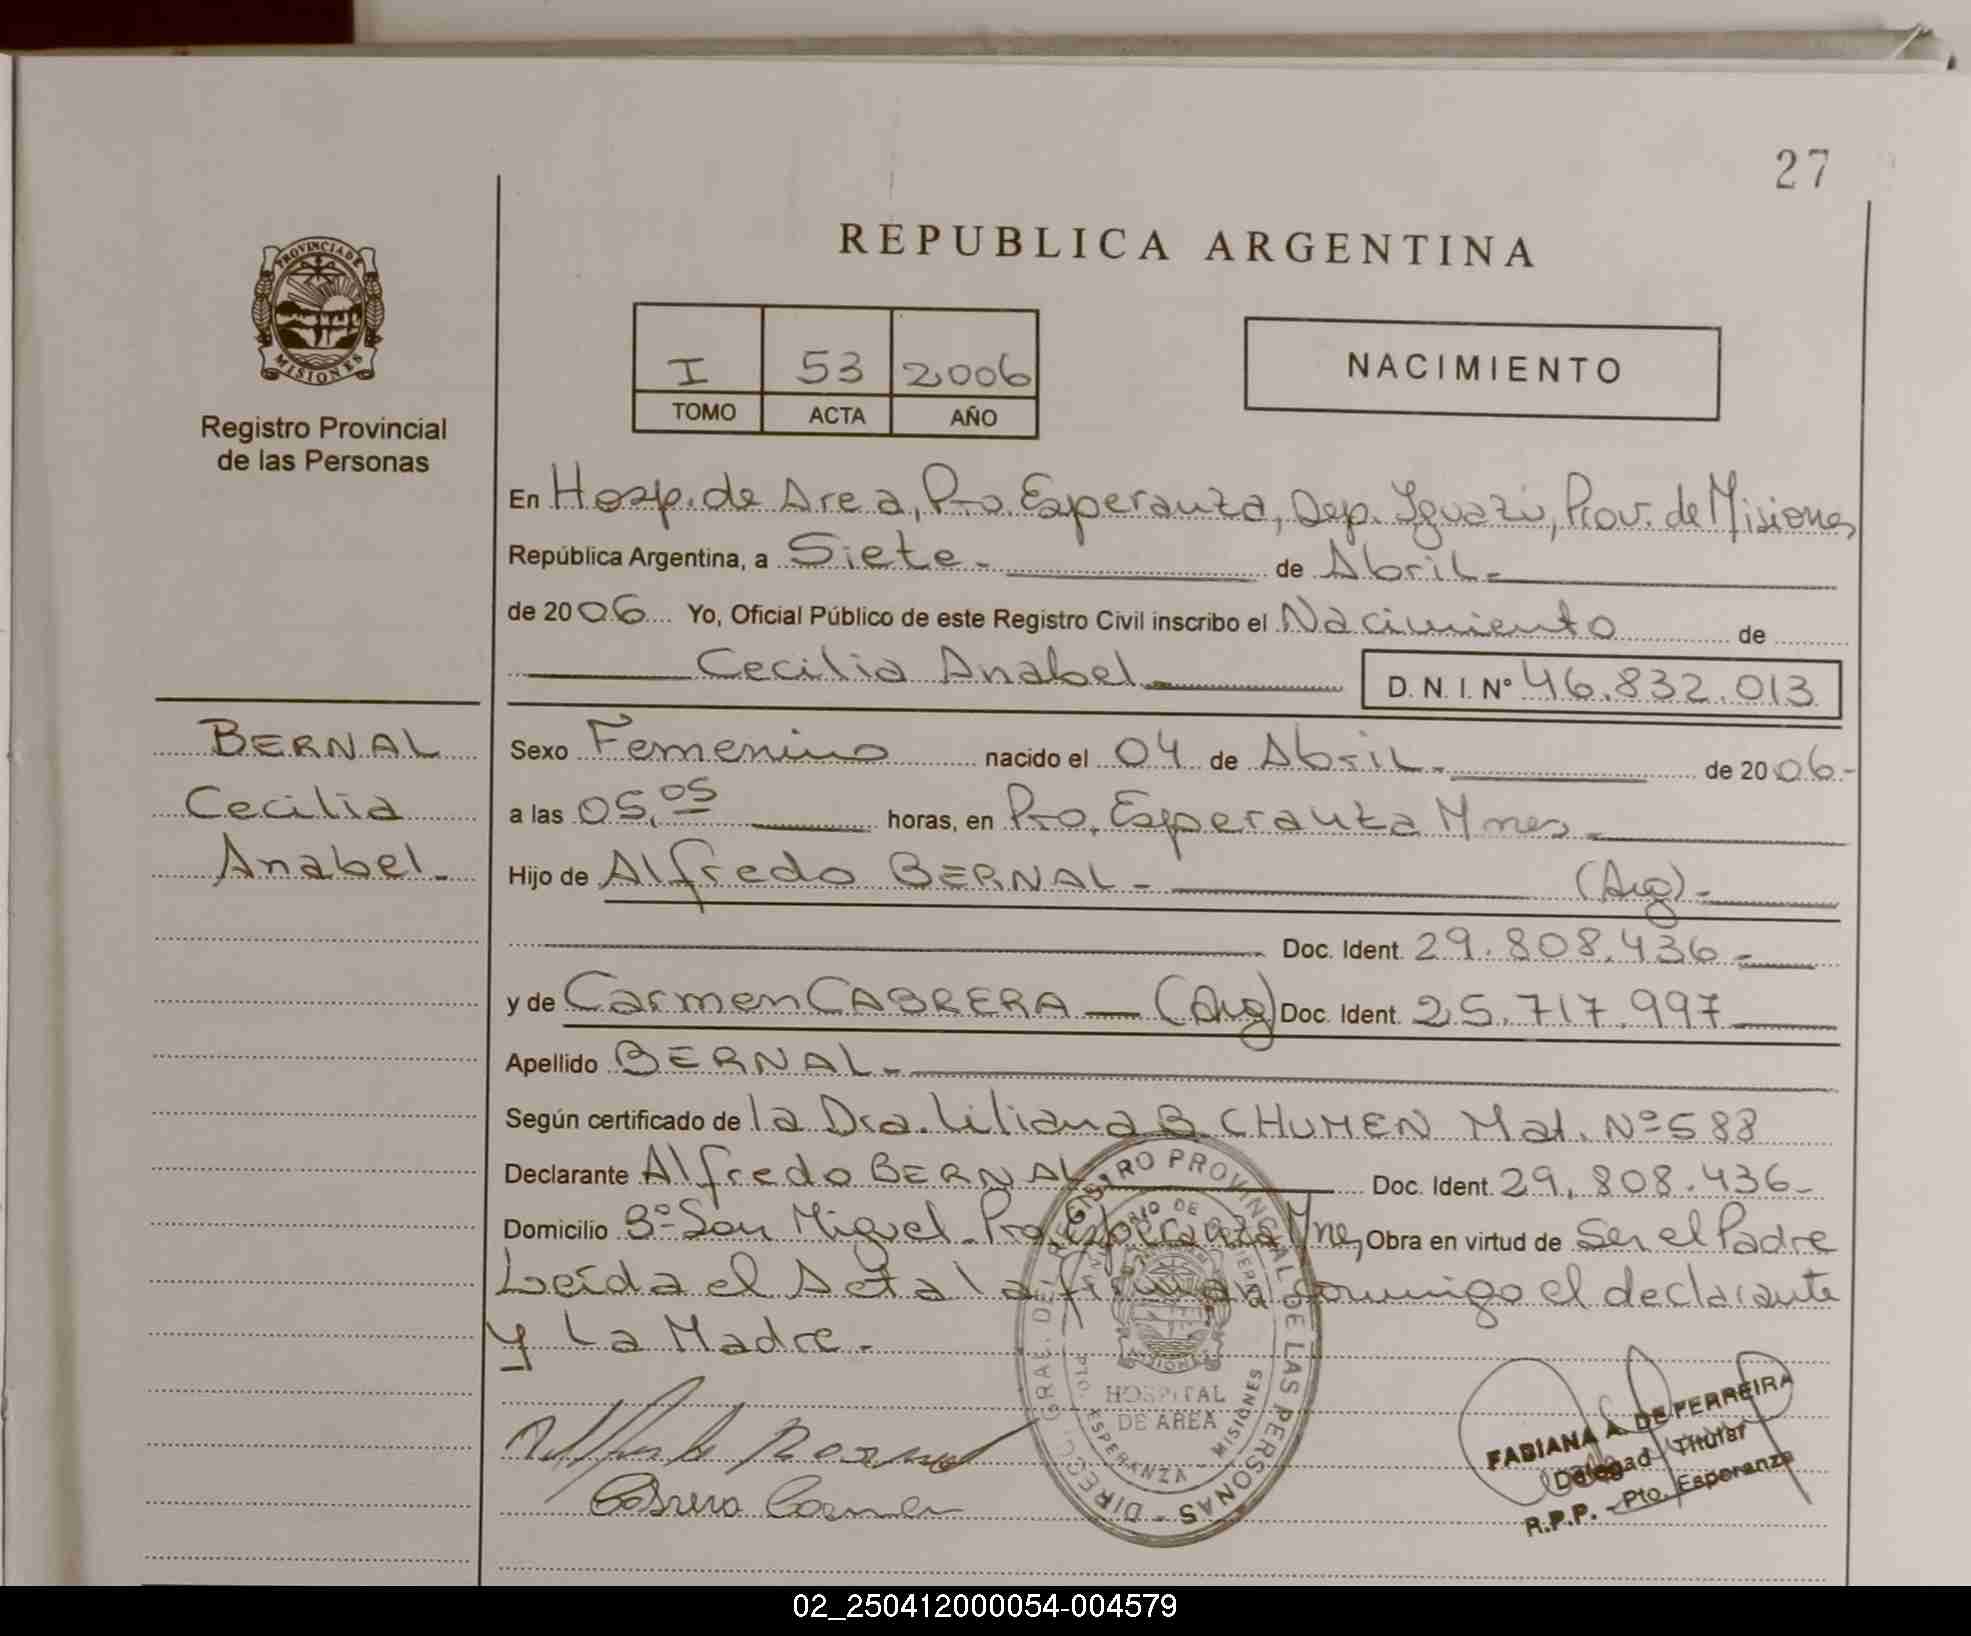 27
REPUBLICA ARGENTINA
PROVINCIA DE
MISIONES
Registro Provincial
de las Personas
I 53 2006
TOMO ACTA AÑO
NACIMIENTO
En Hosp. de Area, Pto. Esperanza, Dep. Iguazú, Prov. de Misiones
República Argentina, a Siete.- de Abril.-
de 2006 Yo, Oficial Público de este Registro Civil inscribo el Nacimiento de
Cecilia Anabel D.N.I. Nº 46.832.013
BERNAL
Cecilia
Anabel.-
Sexo Femenino nacido el 04 de Abril.- de 2006.-
a las 05,05 horas, en Pto. Esperanza Mnes.-
Hijo de Alfredo BERNAL.- (Arg).-
Doc. Ident. 29.808.436.-
y de Carmen CABRERA — (Arg) Doc. Ident. 25.717.997
Apellido BERNAL.-
Según certificado de la Dra. Liliana B. CHUMEN Mat. Nº 588
Declarante Alfredo BERNAL Doc. Ident. 29.808.436-
Domicilio Bº San Miguel - Pto. Esperanza Mnes, Obra en virtud de Ser el Padre
Leída el Acta la firman conmigo el declarante
y La Madre.-
Cabrera Carmen
DIRECC. GRAL. DE REGISTRO PROVINCIAL DE LAS PERSONAS
MINISTERIO DE GOBIERNO
MISIONES
HOSPITAL
DE AREA
PTO. ESPERANZA - MISIONES
FABIANA A. DE FERREIRA
Delegad Titular
R.P.P. - Pto. Esperanza
02_250412000054-004579